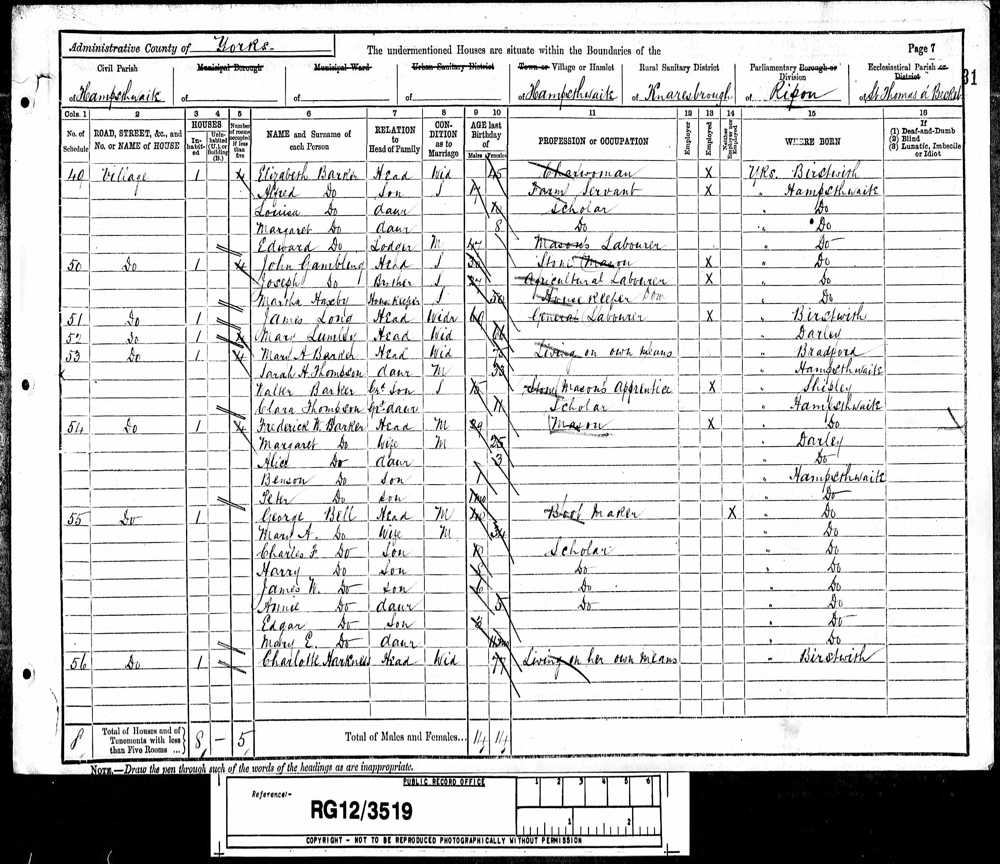 Administrative County of Yorks.
The undermentioned Houses are situate within the Boundaries of the
Page 7
Civil Parish
Municipal Borough
Municipal Ward
Urban Sanitary District
Town or Village or Hamlet
Rural Sanitary District
Parliamentary Borough or Division
Ecclesiastical Parish or District
31
of Hampsthwaite
of
of
of
of Hampsthwaite
of Knaresbrough
of Ripon
of St Thomas à Becket
Cols. 1 2 3 4 5 6 7 8 9 10 11 12 13 14 15 16
No. of Schedule
ROAD, STREET, &c., and No. or NAME of HOUSE
HOUSES
Inhabited
Uninhabited (U.), or Building (B.)
Number of rooms occupied if less than five
NAME and Surname of each Person
RELATION to Head of Family
CONDITION as to Marriage
AGE last Birthday of
Males Females
PROFESSION or OCCUPATION
Employer
Employed
Neither Employer nor Employed
WHERE BORN
If
(1) Deaf-and-Dumb
(2) Blind
(3) Lunatic, Imbecile or Idiot
49 Village 1 4 Elizabeth Barker Head Wid 45 Charwoman X Yks. Birstwith
Alfred Do Son S Farm Servant X " Hampsthwaite
Louisa Do daur 10 Scholar " Do
Margaret Do daur 8 Do " Do
Edward Do Lodger M 47 Mason's Labourer " Do
50 Do 1 4 John Gambleng Head S 30 Stone Mason X " Do
Joseph Do Brother S 27 Agricultural Labourer X " Do
Martha Haxby Housekeeper S 50 House Keeper Dom " Do
51 Do 1 James Long Head Widr 69 General Labourer X " Birstwith
52 Do 1 4 Mary Lumley Head Wid 66 " Darley
53 Do 1 4 Mary A Barker Head Wid 75 Living on own means " Bradford
Sarah H Thompson daur M 33 " Hampsthwaite
Walker Barker Gr. Son S 15 Stone Mason's Apprentice X " Shipley
Clara Thompson Gr. daur 11 Scholar " Hampsthwaite
54 Do 1 4 Frederick W. Barker Head M 29 Mason X " Do
Margaret Do Wife M 25 " Darley
Alice Do daur 3 " Do
Benson Do Son 1 " Hampsthwaite
Peter Do Son 1mo " Do
55 Do 1 George Bell Head M 40 Boot Maker X " Do
Mary A. Do Wife M 34 " Do
Charles F. Do Son 10 Scholar " Do
Harry Do Son 8 Do " Do
James W. Do Son 6 Do " Do
Annie Do daur 5 Do " Do
Edgar Do Son 3 " Do
Mary E. Do daur 11mo " Do
56 Do 1 Charlotte Harkness Head Wid 77 Living on her own means " Birstwith
8 Total of Houses and of Tenements with less than Five Rooms ... 8 – 5 Total of Males and Females... 14 14
NOTE.—Draw the pen through such of the words of the headings as are inappropriate.
PUBLIC RECORD OFFICE
1 2 3 4 5 6
Reference:-
RG12/3519
1 2
COPYRIGHT - NOT TO BE REPRODUCED PHOTOGRAPHICALLY WITHOUT PERMISSION